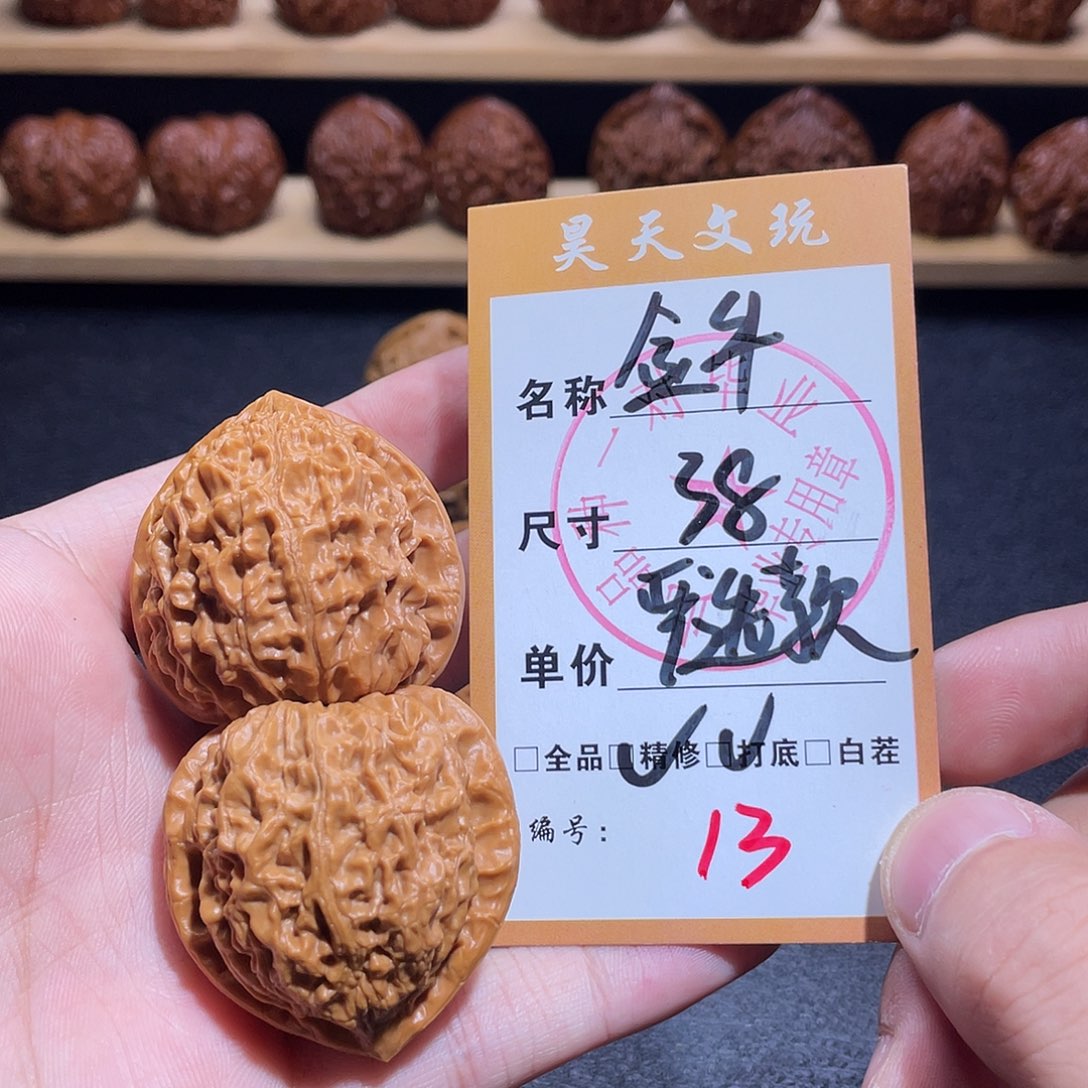 昊天文玩
名称 盒牛
尺寸 38
单价 平选款
□全品□精修□打底□白茬
编号： 13
专用章